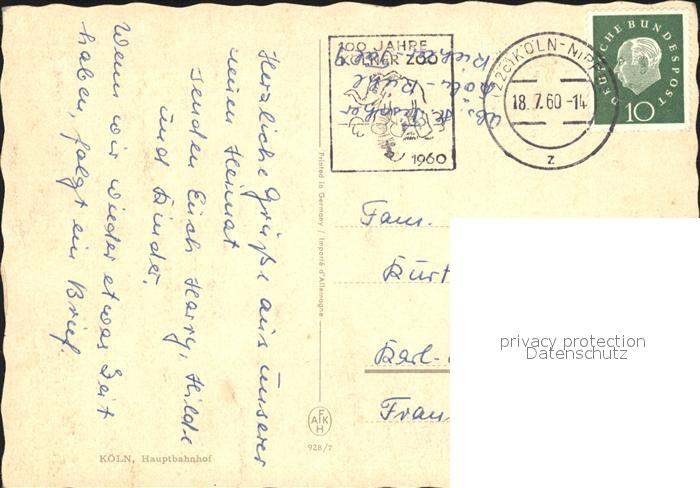 100 JAHRE
KÖLNER ZOO
1960
(22c) KÖLN-NIPP
18.7.60-14
z
DEUTSCHE BUNDESPOST
10
Herzliche Grüße aus unserer
neuen Heimat
senden Euch Harry, Hilde
und Kinder.
Wenn wir wieder etwas Zeit
haben, folgt ein Brief.
Printed in Germany / Importé d'Allemagne
Fam.
Kurt
Karl-
Fran
privacy protection
Datenschutz
AFKH
928/7
KÖLN, Hauptbahnhof